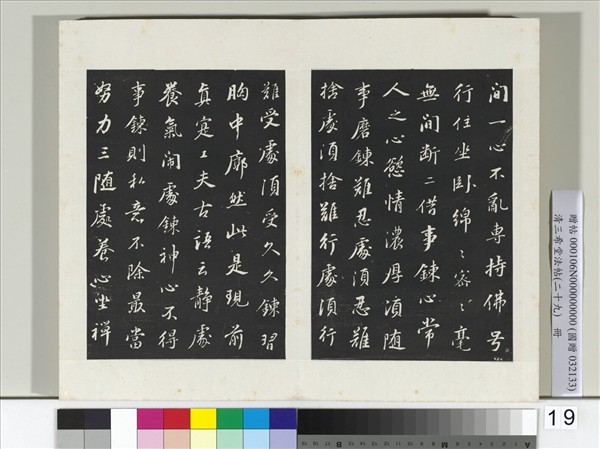 间一心不亂専持佛号
行住坐卧綿〻密〻毫
無间断二借事鍊心常
人之心慾情濃厚須随
事磨鍊難忍處須忍難
捨處須捨難行處須行
難受處須受久久鍊習
胸中廓然此是現前
真实工夫古語云静處
養氣闹處鍊神心不得
事鍊則私意不除最當
努力三随處養心坐禅
贈帖 000106N000000000 (國贈 032133)
清三希堂法帖(二十九) 冊
19